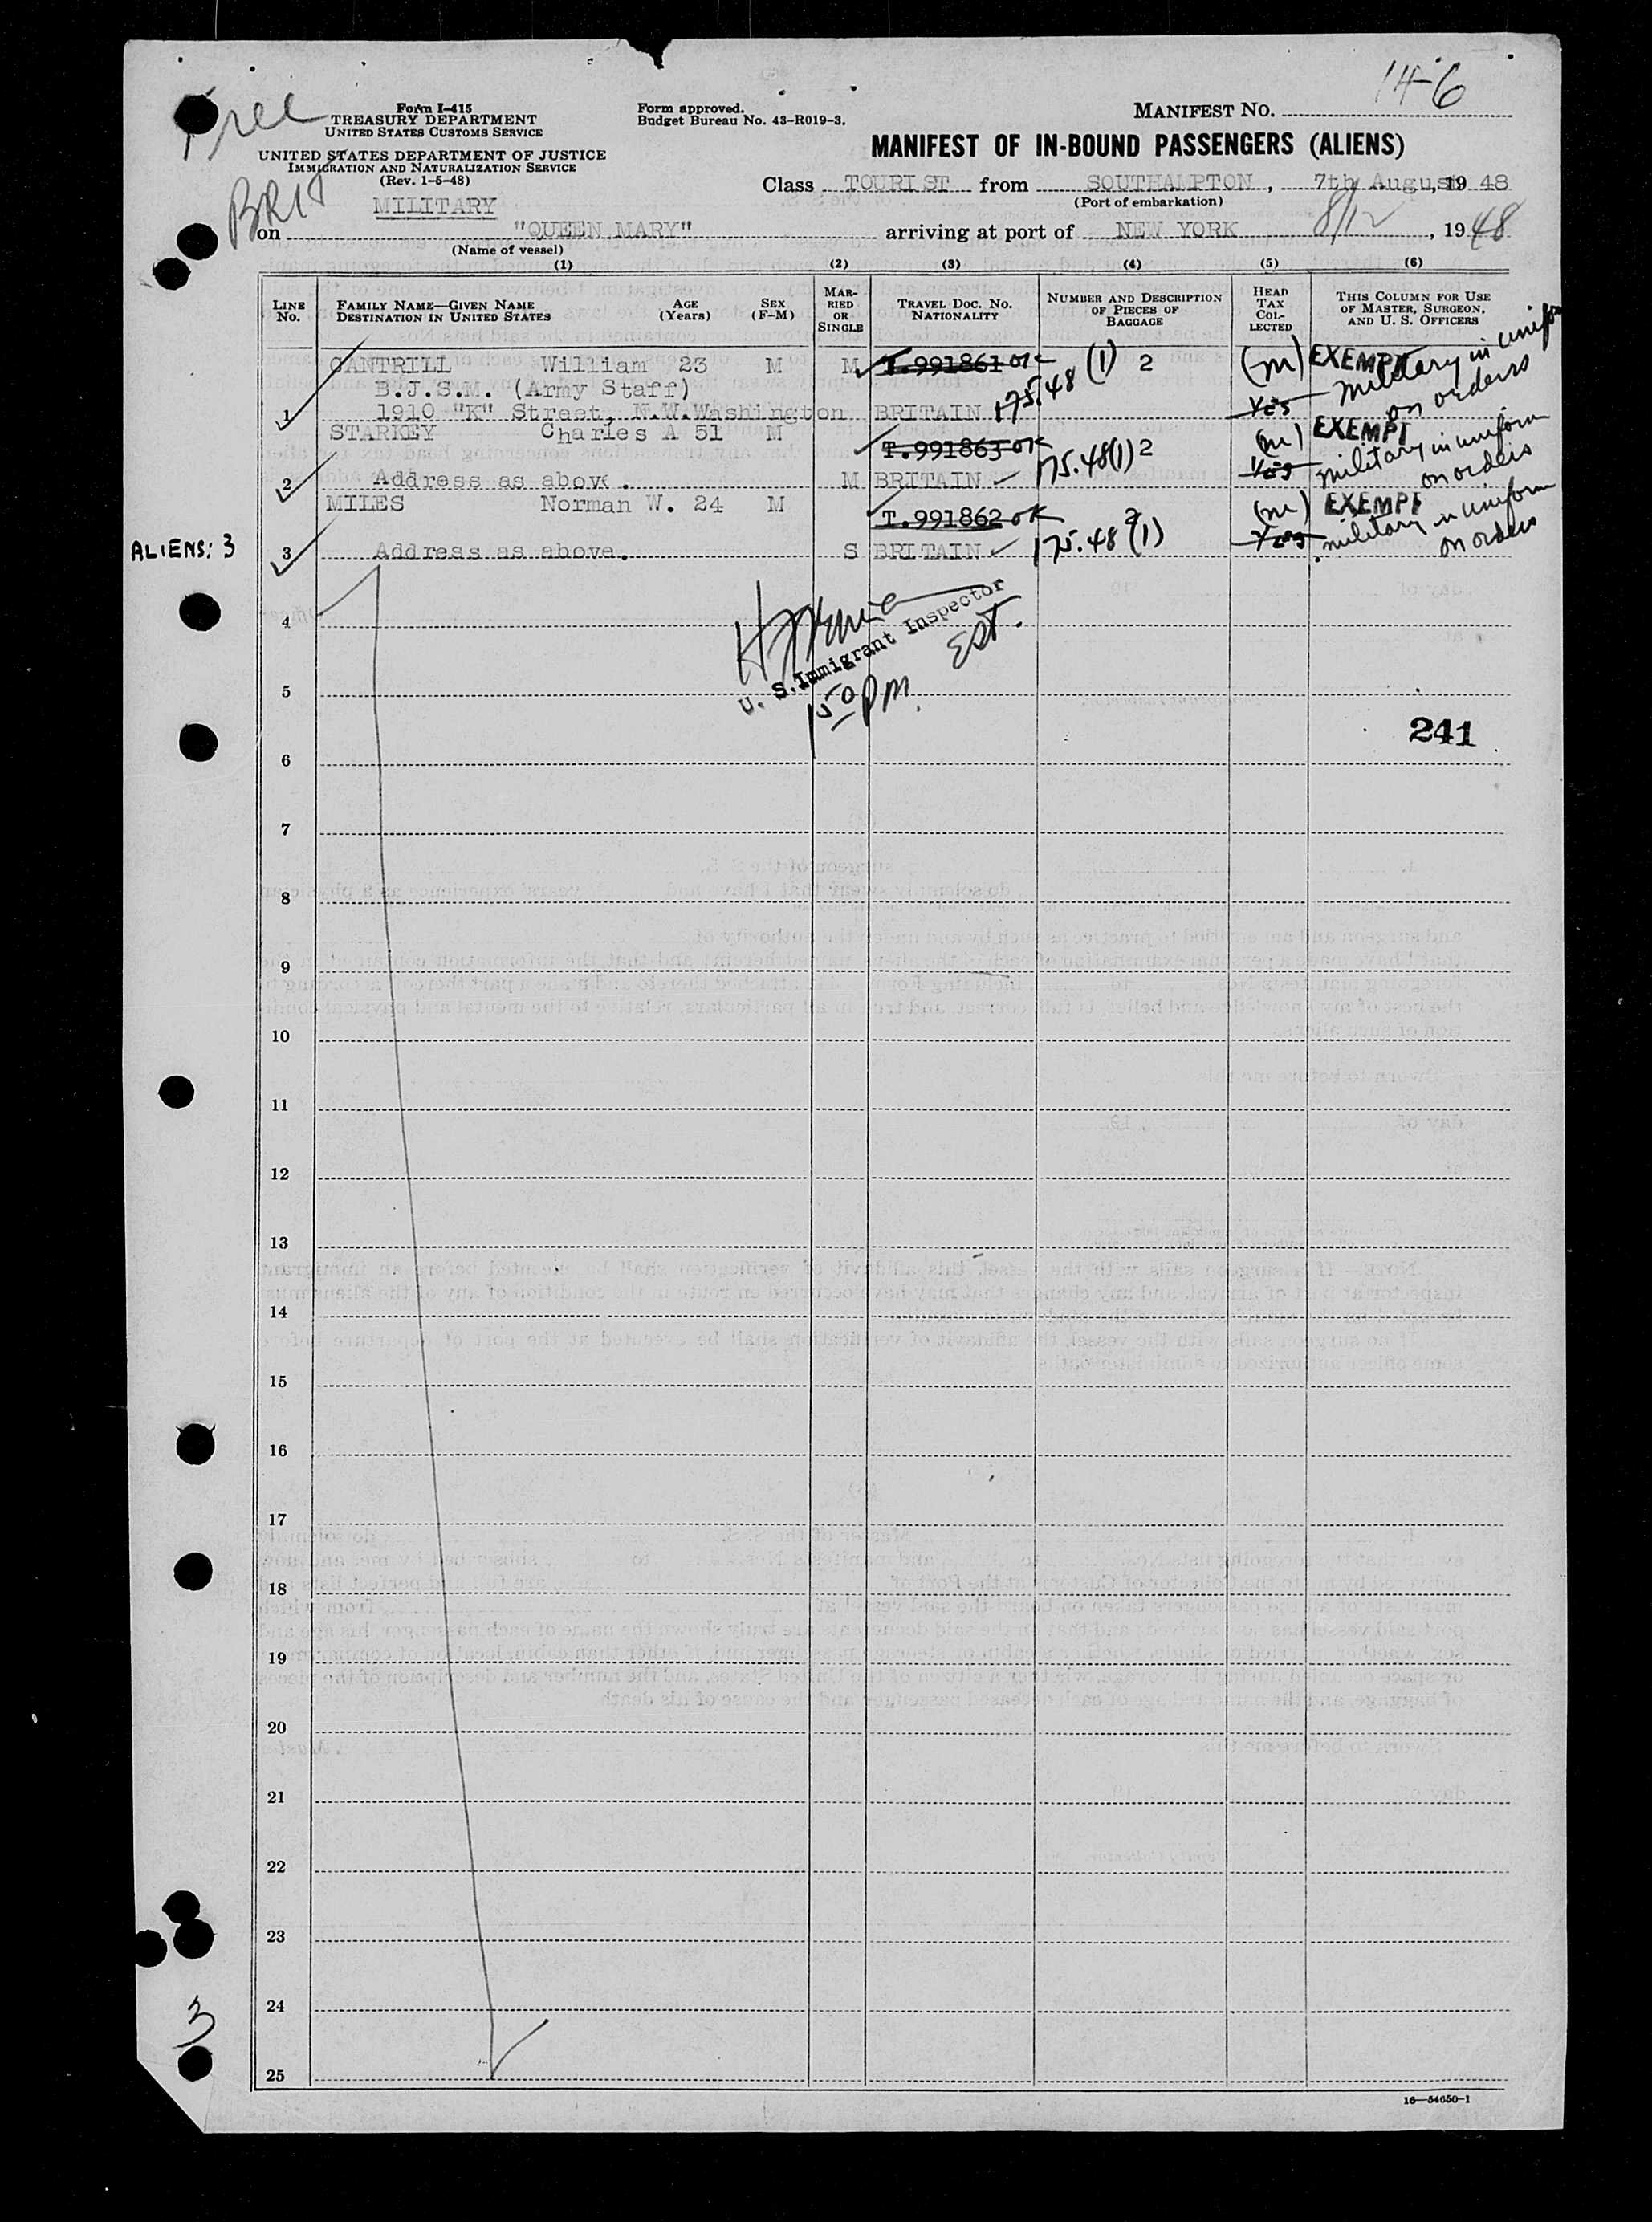 14-6
Free
Form I-415
TREASURY DEPARTMENT
UNITED STATES CUSTOMS SERVICE
Form approved.
Budget Bureau No. 43-R019-3.
MANIFEST NO.
UNITED STATES DEPARTMENT OF JUSTICE
IMMIGRATION AND NATURALIZATION SERVICE
(Rev. 1-5-48)
MANIFEST OF IN-BOUND PASSENGERS (ALIENS)
Class TOURIST from SOUTHAMPTON, 7th August, 19 48
(Port of embarkation)
BRIT
MILITARY
on "QUEEN MARY" arriving at port of NEW YORK 8/12, 19 48
(Name of vessel)
(1) (2) (3) (4) (5) (6)
LINE No. FAMILY NAME—GIVEN NAME DESTINATION IN UNITED STATES AGE (Years) SEX (F-M) MARRIED OR SINGLE TRAVEL DOC. NO. NATIONALITY NUMBER AND DESCRIPTION OF PIECES OF BAGGAGE HEAD TAX COLLECTED THIS COLUMN FOR USE OF MASTER, SURGEON, AND U. S. OFFICERS
CANTRILL William 23 M M T.991861 OK (1) 2 (m) EXEMPT military in uniform
B.J.S.M. (Army Staff)
1 1910 "K" Street, N.W.Washington BRITAIN 175.48 Yes on orders
STARKEY Charles A 51 M T.991863 OK 2 (m) EXEMPT
2 Address as above. M BRITAIN 175.48 (1) Yes military in uniform on orders
MILES Norman W. 24 M T.991862 OK 2 (m) EXEMPT
ALIENS: 3
3 Address as above. S BRITAIN 175.48 (1) Yes military in uniform on orders
4
U. S. Immigrant Inspector
EST.
5
1 50 PM.
241
6
7
8
9
10
11
12
13
14
15
16
17
18
19
20
21
22
23
24
3
25
16—54650-1